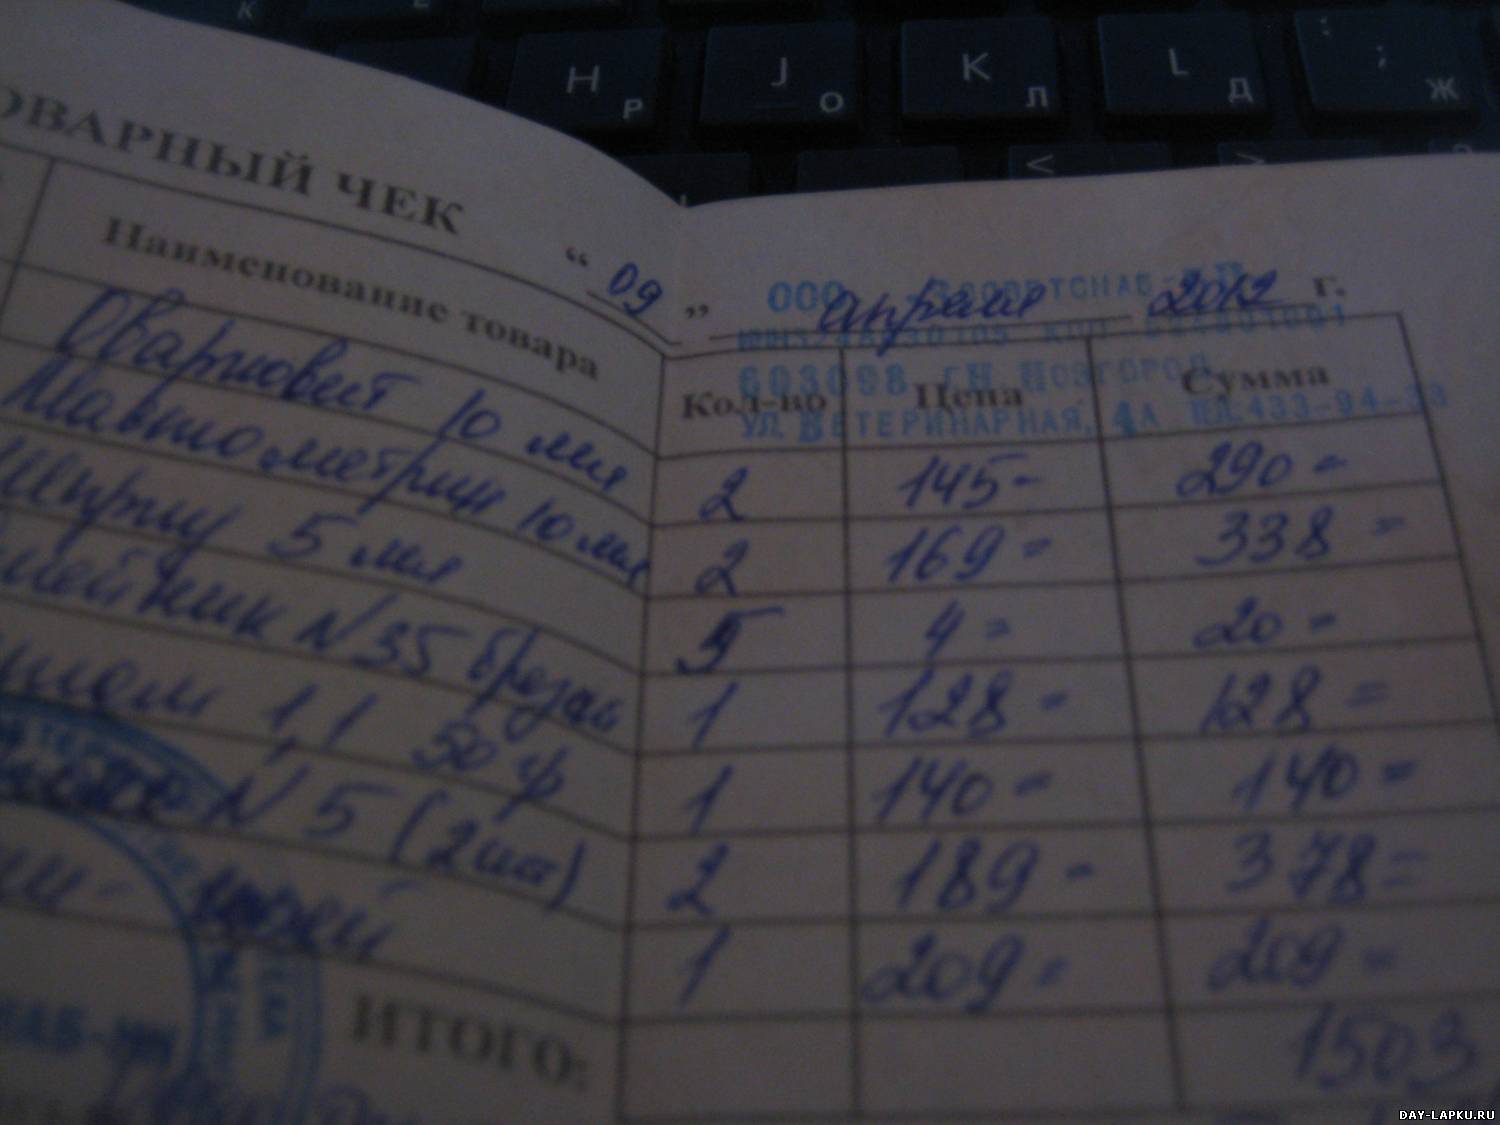 К
H Р J О K Л L Д ; Ж
< >
ТОВАРНЫЙ ЧЕК
" 09 " апреля 2012 г.
ООО
603098 Г.Н НОВГОРОД
УЛ. ВЕТЕРИНАРНАЯ, 4А ТЕЛ:433-94-
Наименование товара Кол-во Цена Сумма
Овариовит 10 мл 2 145- 290=
Мастометрин 10 мл 2 169= 338=
Шприц 5 мл 5 4= 20=
ошейник N 35 1 128= 128=
1,1 50 ф 1 140= 140=
N 5 (2шт) 2 189- 378=
1 209= 209=
ИТОГО: 1503
DAY-LAPKU.RU